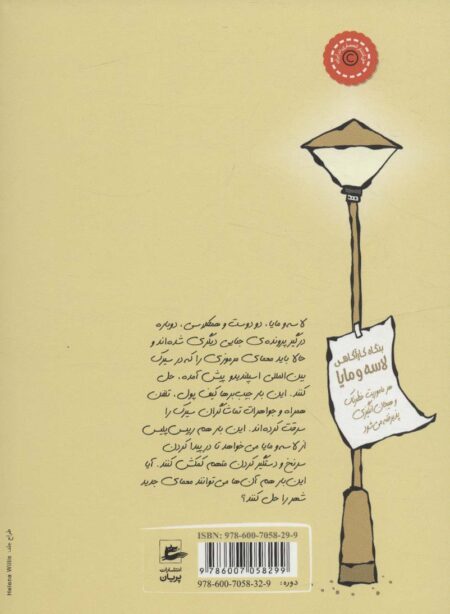 بنگاه کارآگاهی
لاسه و مایا
هر ماموریت خطرناک
و هیجان‌انگیزی
پذیرفته می‌شود
لاسه و مایا، دو دوست و همکلاسی، دوباره
درگیر پرونده‌ی جنایی دیگری شده‌اند و
حالا باید معمای مرموزی را که در سیرک
بین‌المللی اسپلندیدو پیش آمده، حل
کنند. این بار جیب‌برها کیف پول، تلفن
همراه و جواهرات تماشاگران سیرک را
سرقت کرده‌اند. این بار هم رییس پلیس
از لاسه و مایا می‌خواهد تا در پیدا کردن
سرنخ و دستگیر کردن متهم کمکش کنند. آیا
این بار هم آن‌ها می‌توانند معمای جدید
شهر را حل کنند؟
ISBN: 978-600-7058-29-9
9 786007 058299
دوره: 978-600-7058-32-9
انتشارات
پریان
طراح جلد: Helena Willis